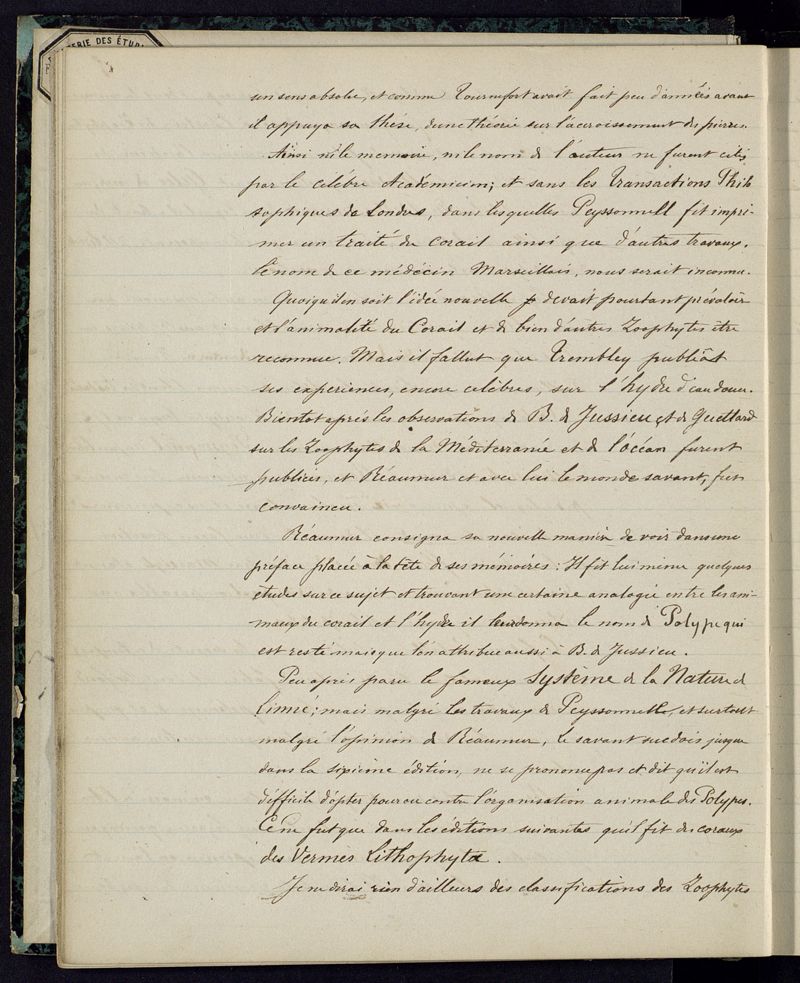 ERIE DES ÉTUD
un sens absolu, et comme Tournefort avait fait peu d'années avant
il appuya sa thése, d'une théorie sur l'accroissement des pierres.
Ainsi ni le memoire, ni le nom de l'auteur ne furent cités
par le celébre Academicien; et sans les Transactions Philo
sophiques de Londres, dans lesquelles Peyssonnell fit impri-
mer un traité du corail ainsi que d'autres travaux.
le nom de ce médécin Marseillais, nous serait inconnu.
Quoiqu'il en soit l'idée nouvelle devait pourtant prévaloir
et l'animalité du Corail et de bien d'autres Zoophytes être
reconnue. Mais il fallut que Trembley publiât
ses experiences, encore celébres, sur l'hydre d'eau douce.
Bientot aprés les observations de B. de Jussieu et de Guettard
sur les Zoophytes de la Méditerranée et de l'océan furent
publiées, et Réaumur et avec lui le monde savant, fut
convaincu.
Réaumur consigna sa nouvelle maniére de voir dans une
préface placée à la tête de ses mémoires: Il fit lui même quelques
études sur ce sujet et trouvant une certaine analogie entre les ani-
maux du corail et l'hydre il leur donna le nom de Polype qui
est resté mais que l'on attribue aussi à B. de Jussieu.
Peu aprés paru le fameux Système de la Nature de
Linné; mais malgré les travaux de Peyssonnell, et surtout
malgré l'opinion de Réaumur, le savant suedois jusque
dans la sixième édition, ne se prononce pas et dit qu'il est
difficile d'opter pour ou contre l'organisation animale des Polypes.
Ce ne fut que dans les éditions suivantes qu'il fit des coraux
des Vermes Lithophyta.
Je ne dirai rien d'ailleurs des classifications des Zoophytes